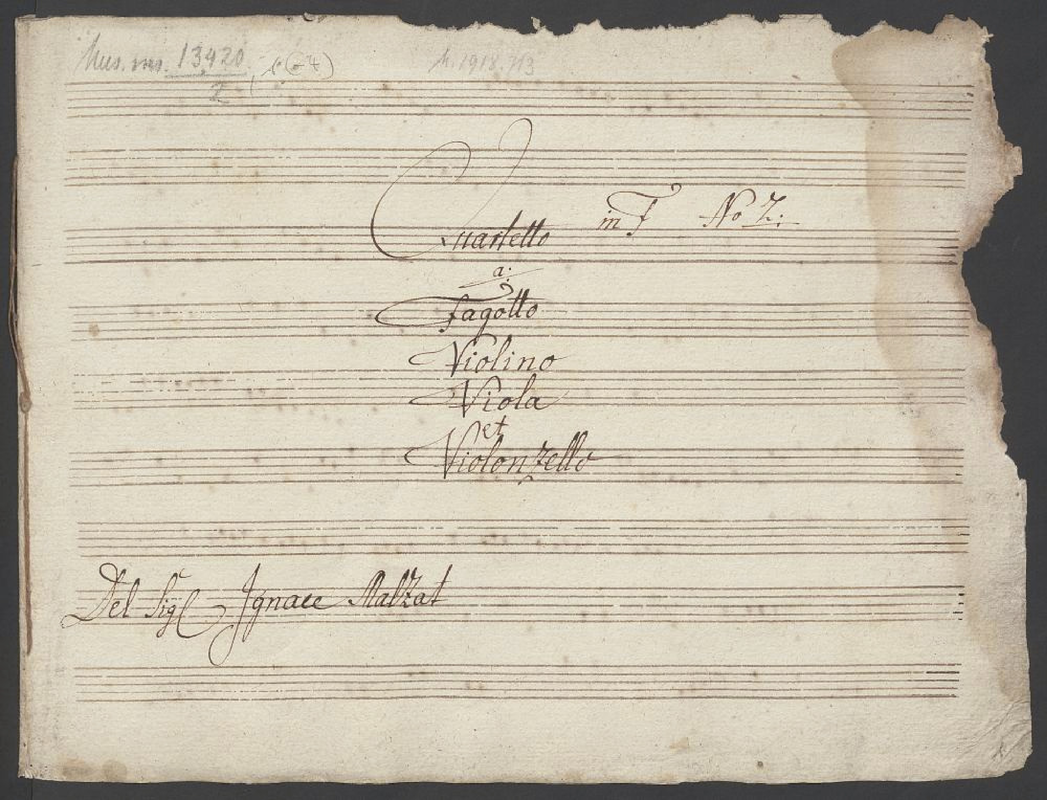 Mus. ms. 13420
2
M. 1918.713
Quartetto in F No 2:
a:
Fagotto
Violino
Viola
et
Violonzello
Del Sigl Ignace Malzat